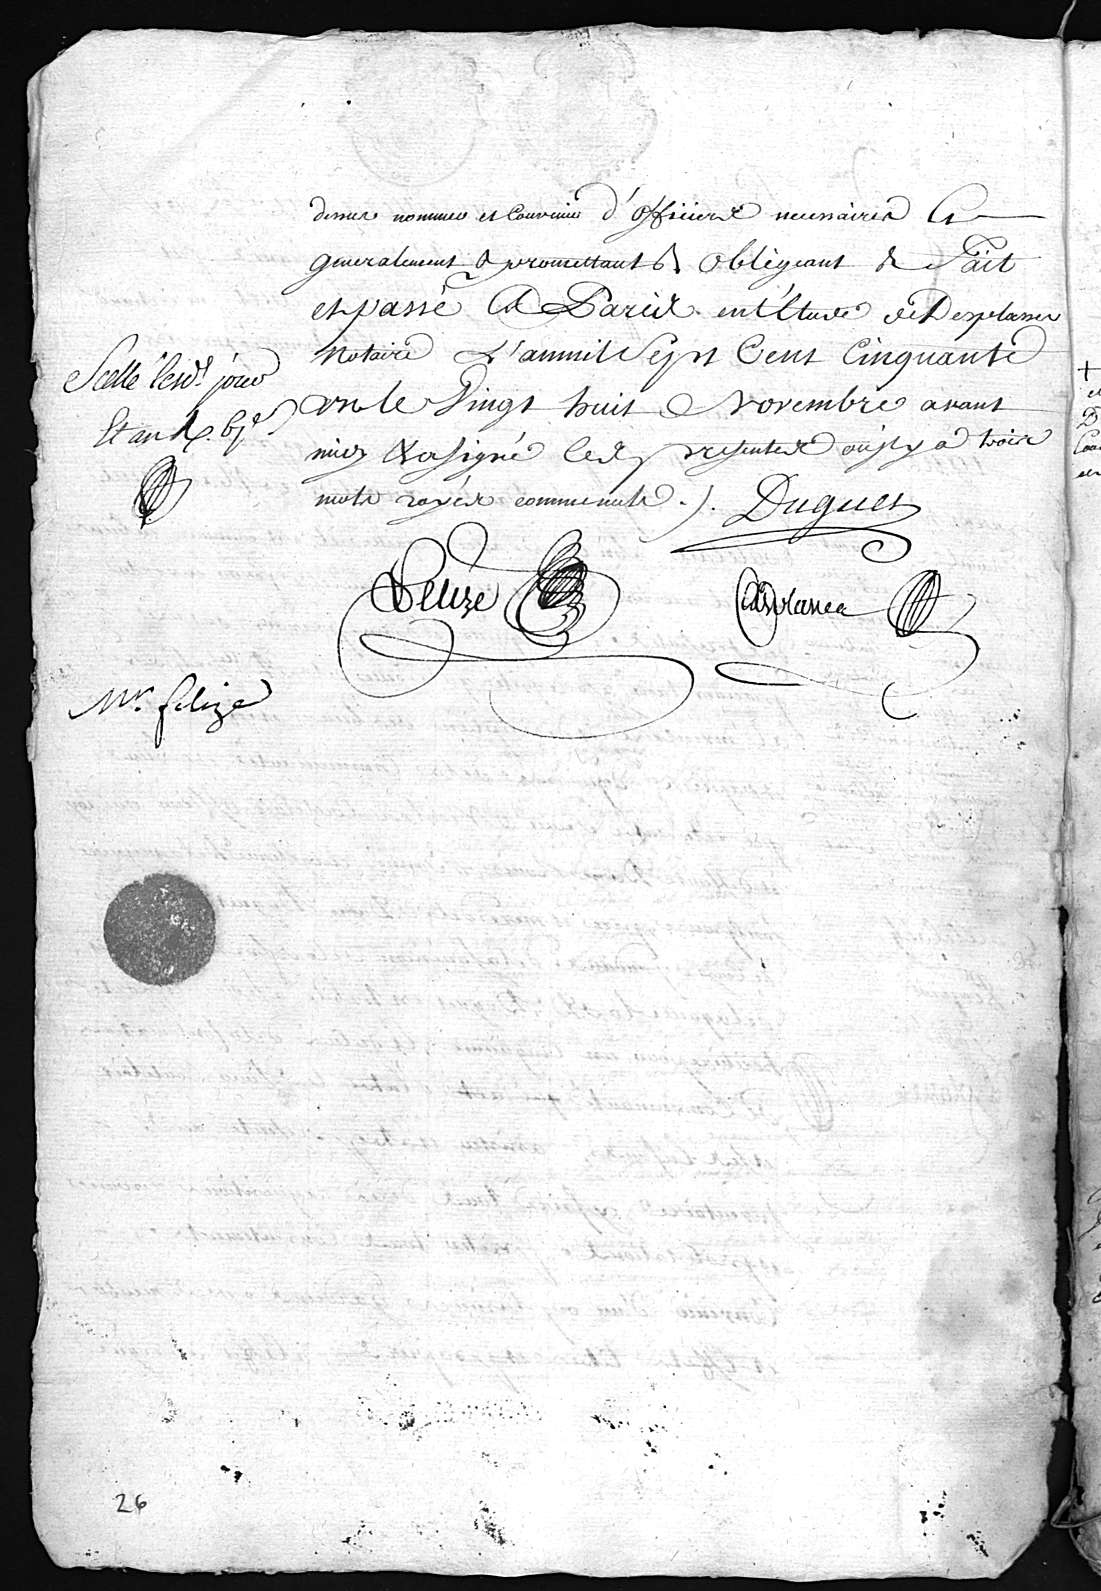 nommer et Convenir d'officiers necessaires Et
generalement & promettant & obligeant & Fait
et passé A Paris en l'Etude de Desplasses
Notaire L'an mil Sept Cent Cinquante
un le Vingt huit Novembre avant
midy & a signé ces presentes ou il y a trois
mots rayés comme nuls ./. Duguet
Scellé lesd. jour
Et an
Felize
Desplasses
Mr. felize
26